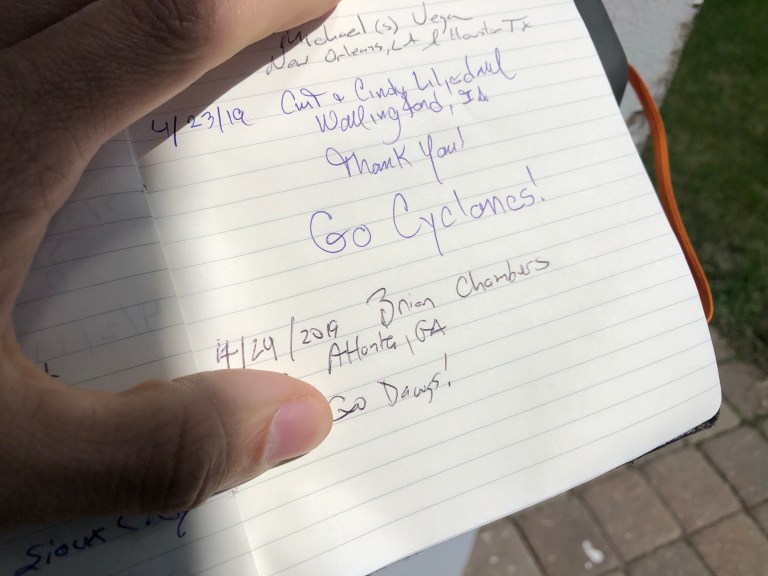 Michael (s) Vega
New Orleans, LA & Houston TX
4/23/19 Curt & Cindy
Wallingford, IA
Thank You!
Go Cyclones!
4/24/2019 Brian Chambers
Atlanta, GA
Go Dawgs!
Sioux City